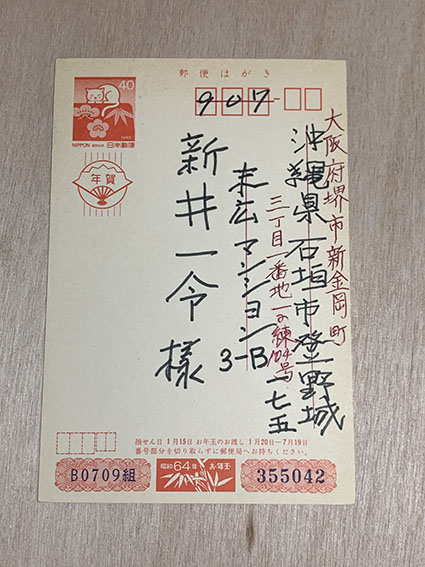 郵便はがき
40
NIPPON 日本郵便
年賀
907
大阪府堺市新金岡町
三丁一番地一の練104号
沖縄県石垣市登野城
一七五
末広マンション
3-B
新井一令様
抽せん日 1月15日 お年玉のお渡し 1月20日―7月19日
番号部分を切り取らずに郵便局へお持ちください。
昭和64年 お年玉
B0709組
355042